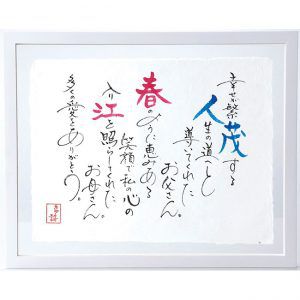 幸せが繁
茂する
人生の道へと
導いてくれた
お父さん。
春のように恵みある
笑顔で私の心の
入り江を照らしてくれた
お母さん。
多くの愛をありがとう。